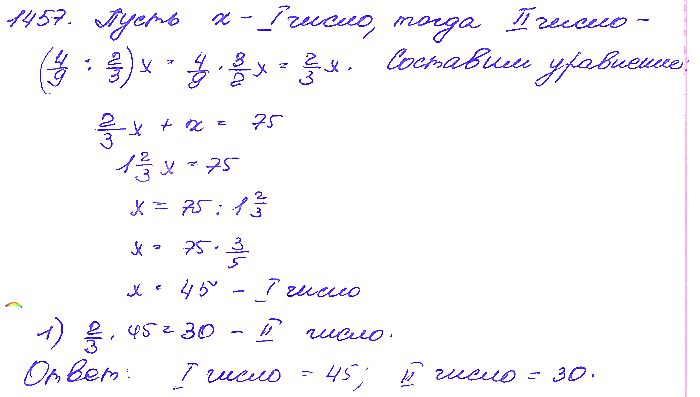 1457. Пусть x - I число, тогда II число -
(4/9 : 2/3)x = 4/9 · 3/2x = 2/3x. Составим уравнение:
2/3x + x = 75
1 2/3 x = 75
x = 75 : 1 2/3
x = 75 · 3/5
x = 45 - I число
1) 2/3 · 45 = 30 - II число.
Ответ: I число = 45; II число = 30.